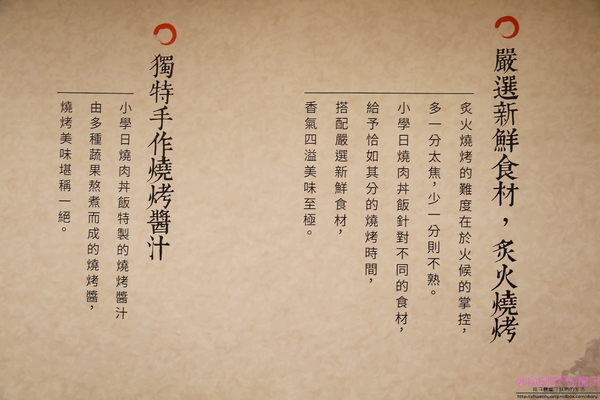 嚴選新鮮食材，炙火燒烤
炙火燒烤的難度在於火候的掌控，
多一分太焦，少一分則不熟。
小學日燒肉丼飯針對不同的食材，
給予恰如其分的燒烤時間，
搭配嚴選新鮮食材，
香氣四溢美味至極。
獨特手作燒烤醬汁
小學日燒肉丼飯特製的燒烤醬汁
由多種蔬果熬煮而成的燒烤醬，
燒烤美味堪稱一絕。